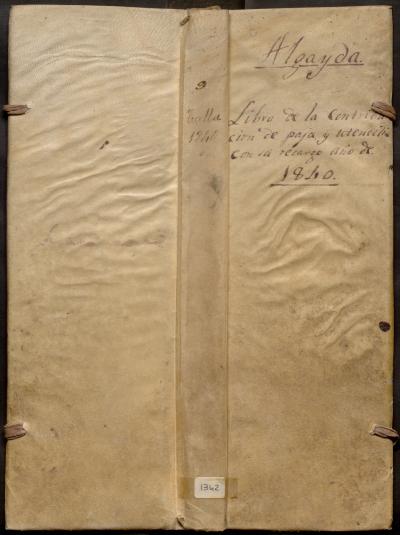 Talla
1840
Algayda.
Libro de la Contribu
cion de paja y utencilio
con su recargo año de
1840.
1342